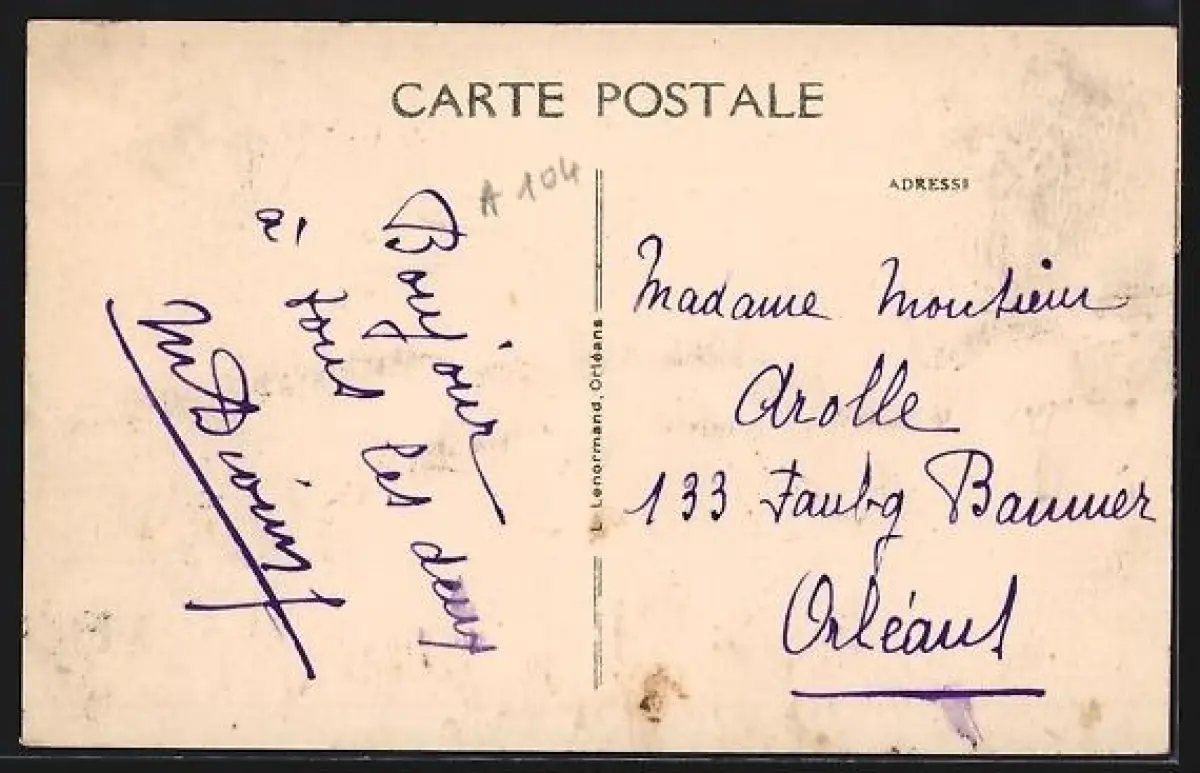 CARTE POSTALE
A 104
ADRESSE
Bonjour
à tous les deux
L. Lenormand, Orléans
Madame Monsieur
Arolle
133 Faubg Bannier
Orléans